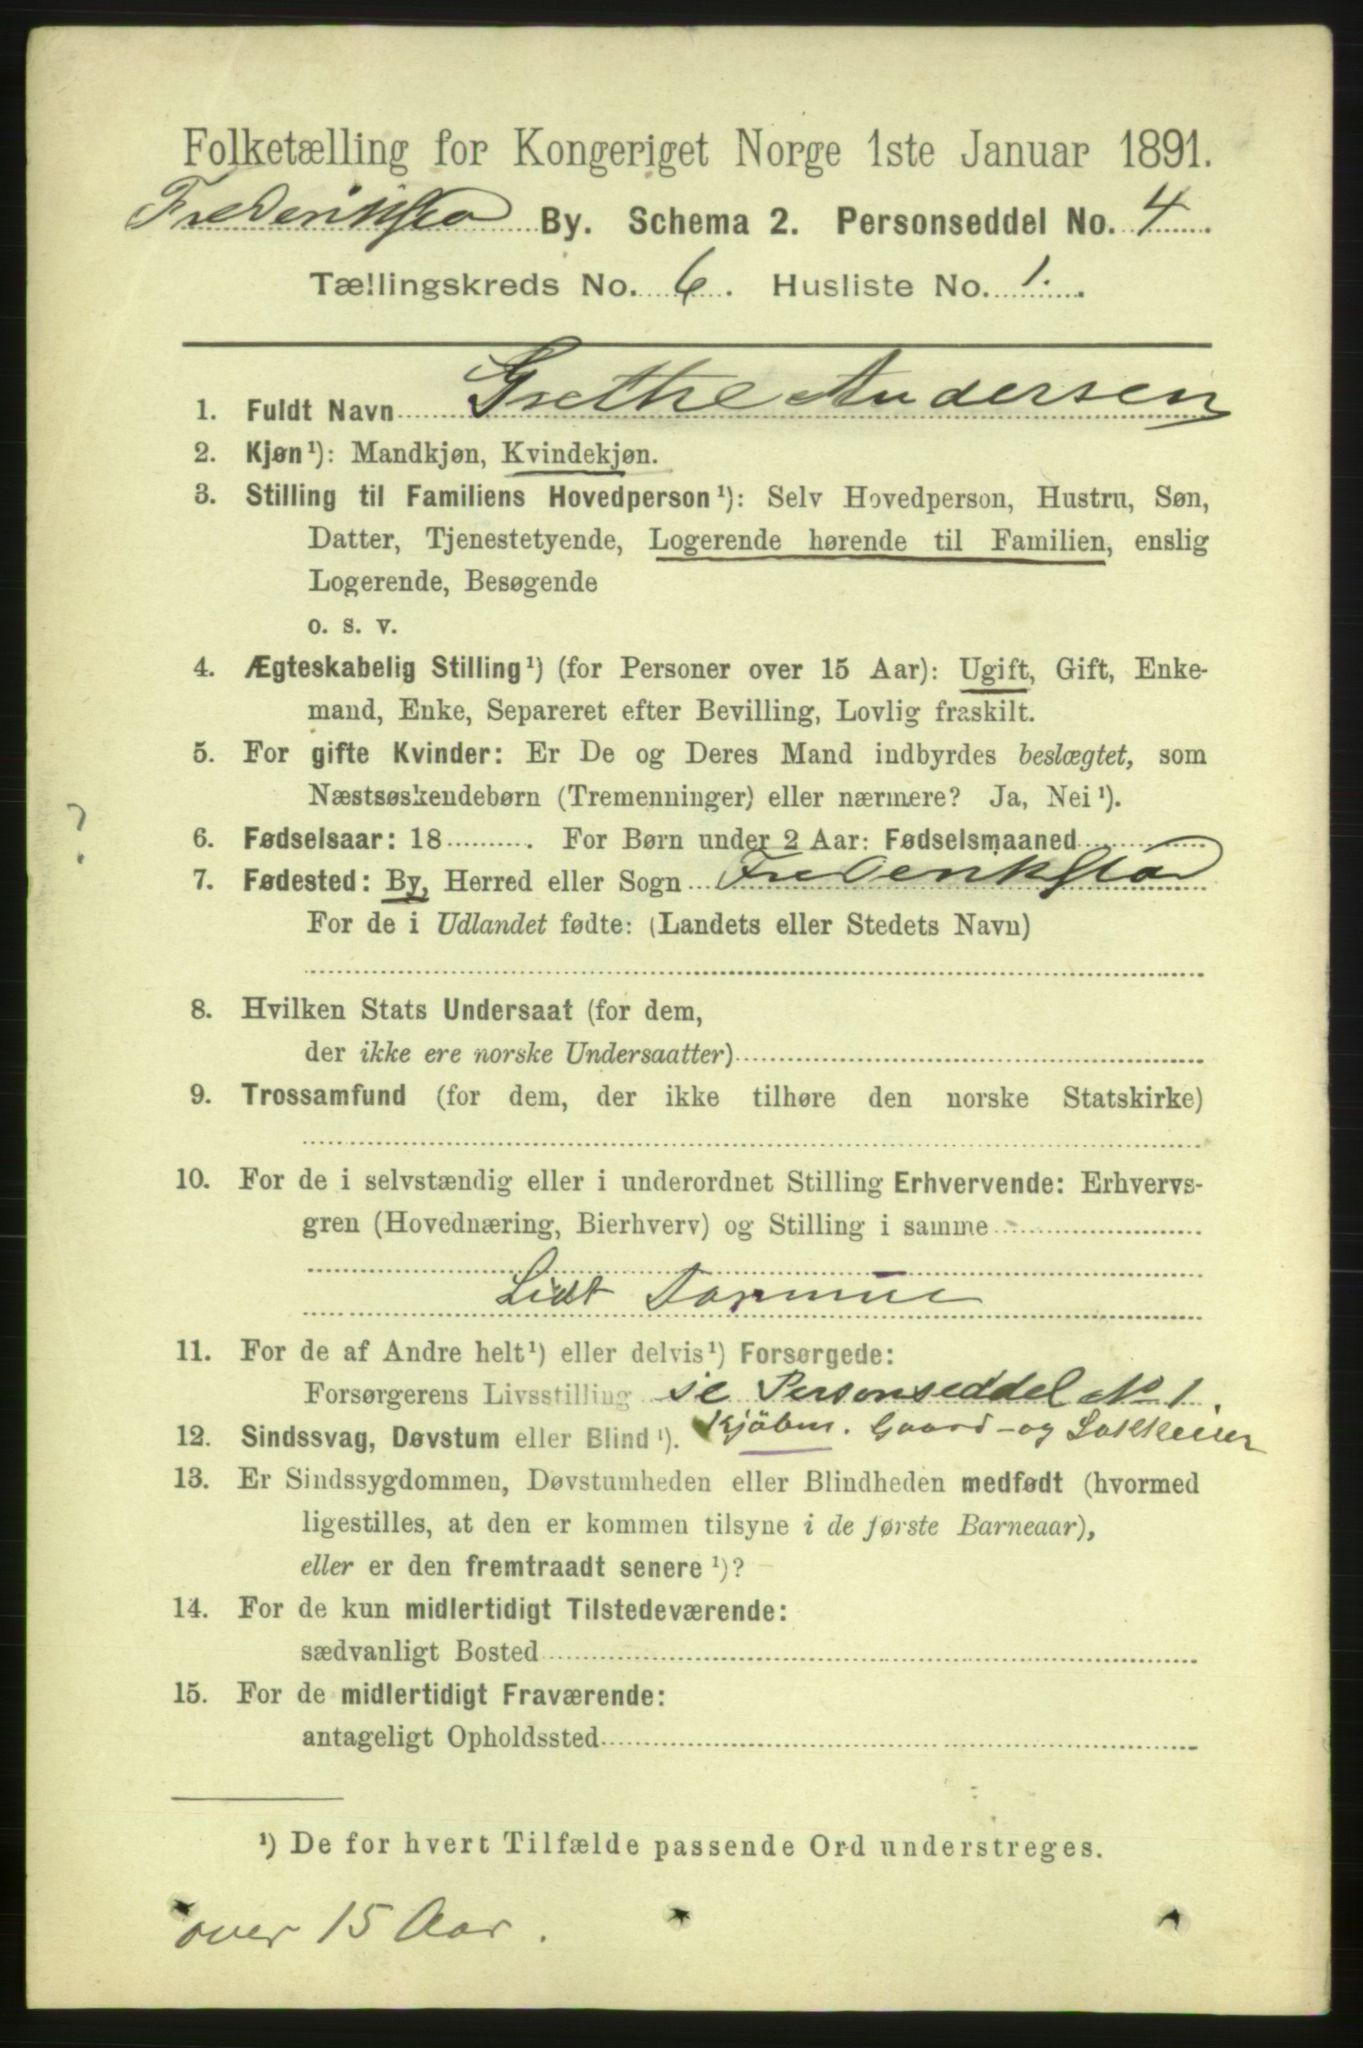 Folketælling for Kongeriget Norge 1ste Januar 1891.
Frederikstad By. Schema 2. Personseddel No. 4
Tællingskreds No. 6. Husliste No. 1.
1. Fuldt Navn Grethe Andersen
2. Kjøn¹): Mandkjøn, Kvindekjøn.
3. Stilling til Familiens Hovedperson¹): Selv Hovedperson, Hustru, Søn,
Datter, Tjenestetyende, Logerende hørende til Familien, enslig
Logerende, Besøgende
o. s. v.
4. Ægteskabelig Stilling¹) (for Personer over 15 Aar): Ugift, Gift, Enke-
mand, Enke, Separeret efter Bevilling, Lovlig fraskilt.
5. For gifte Kvinder: Er De og Deres Mand indbyrdes beslægtet, som
Næstsøskendebørn (Tremenninger) eller nærmere? Ja, Nei¹).
?
6. Fødselsaar: 18 . For Børn under 2 Aar: Fødselsmaaned
7. Fødested: By, Herred eller Sogn Frederikstad
For de i Udlandet fødte: (Landets eller Stedets Navn)
8. Hvilken Stats Undersaat (for dem,
der ikke ere norske Undersaatter)
9. Trossamfund (for dem, der ikke tilhøre den norske Statskirke)
10. For de i selvstændig eller i underordnet Stilling Erhvervende: Erhvervs-
gren (Hovednæring, Bierhverv) og Stilling i samme
Lidt Formue
11. For de af Andre helt¹) eller delvis¹) Forsørgede:
Forsørgerens Livsstilling se Personseddel No 1.
Kjöbm. Gaard- og
12. Sindssvag, Døvstum eller Blind¹).
13. Er Sindssygdommen, Døvstumheden eller Blindheden medfødt (hvormed
ligestilles, at den er kommen tilsyne i de første Barneaar),
eller er den fremtraadt senere¹)?
14. For de kun midlertidigt Tilstedeværende:
sædvanligt Bosted
15. For de midlertidigt Fraværende:
antageligt Opholdssted
¹) De for hvert Tilfælde passende Ord understreges.
over 15 Aar.